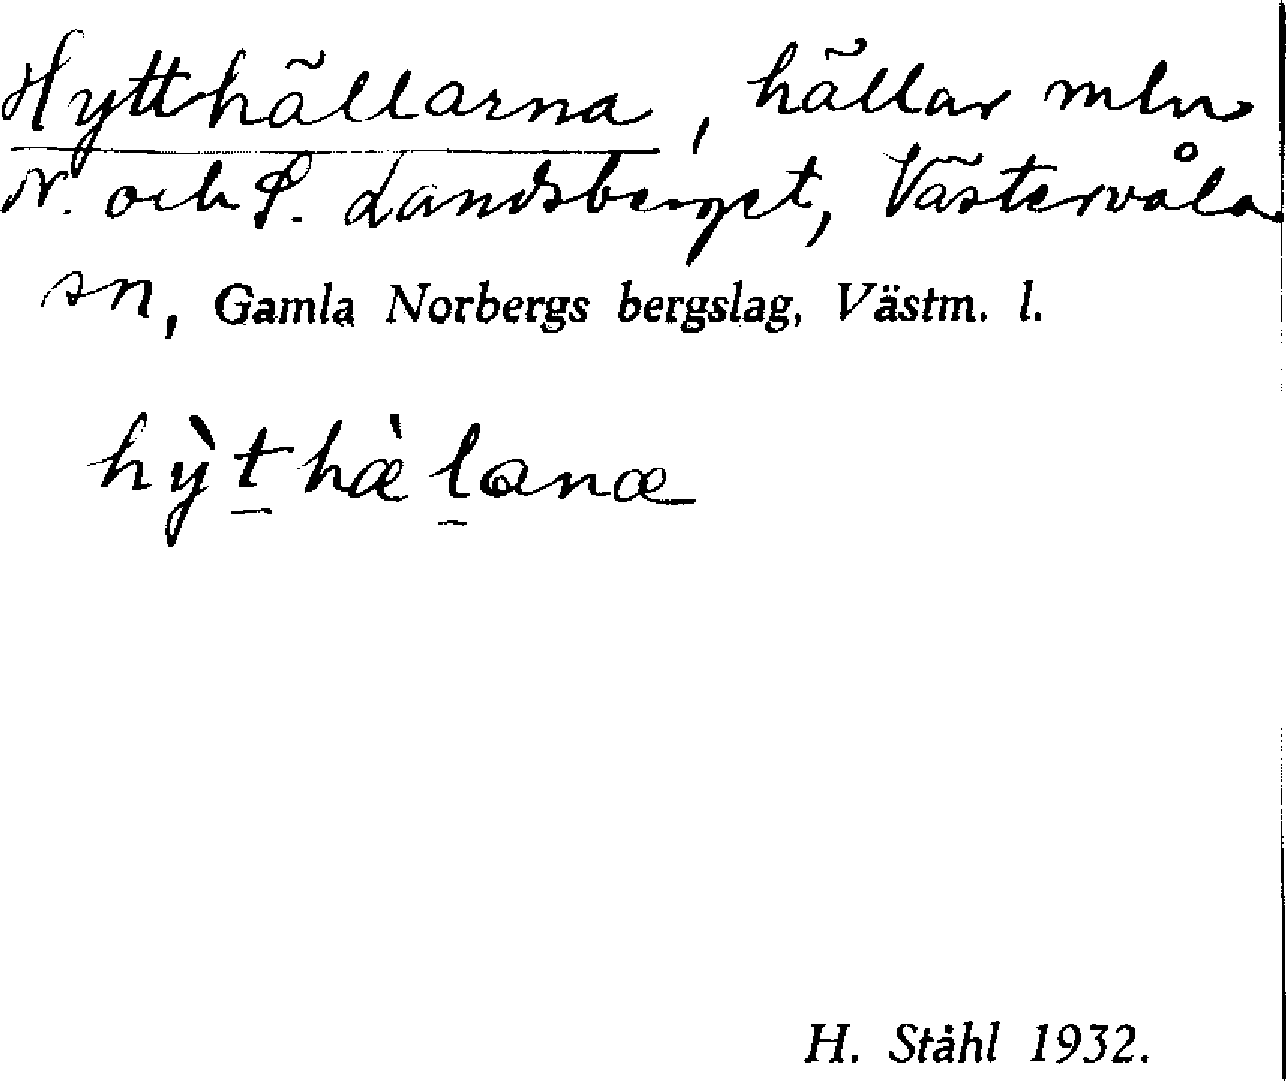 Hytthällarna, hällar mln
N. och S. Landsberget, Västervåla
sn, Gamla Norbergs bergslag, Västm. l.
hỳt̠hæ̀l̠ɑnæ
H. Ståhl 1932.